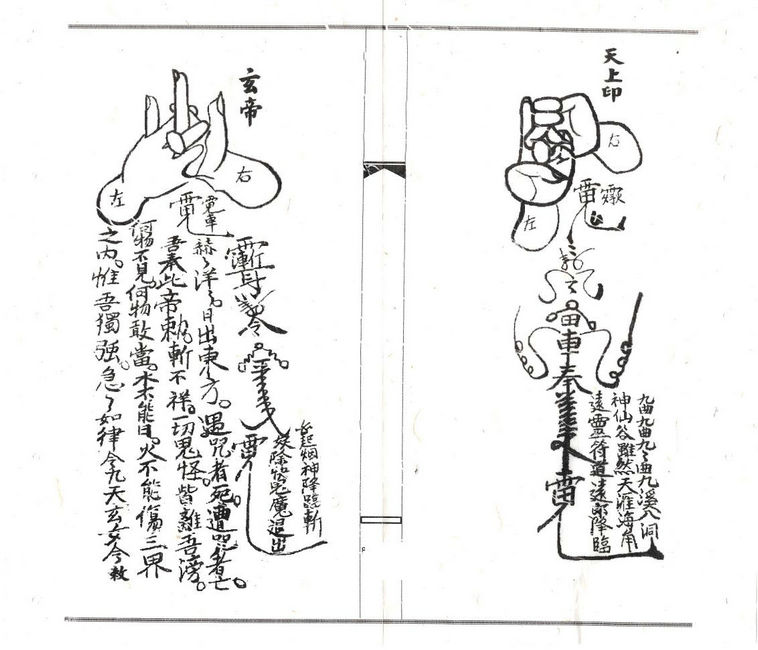 天上印
右
左
雷
車奉
雷
九曲九曲九曲九溪八洞
神仙谷雖然天涯海角
遠靈符道遠來降臨
玄帝
右
左
令
雷
女起烟神降臨斬
妖除怪鬼魔退出
赫〻洋〻日出東方。遇咒者死遭咒者亡。
吾奉此帝敕。斬不祥。一切鬼怪。皆離吾滂。
何物不見。何物敢當。水不能溺。火不能傷三界
之內。惟吾獨强。急〻如律令九天玄女令敕